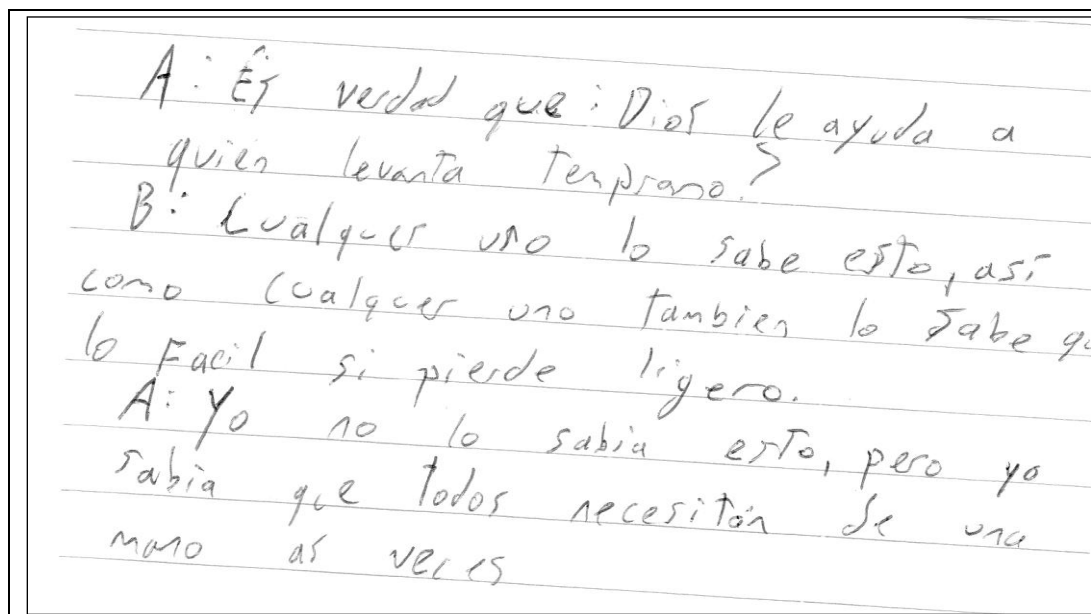 A: És verdad que: Dios le ayuda a
quien levanta temprano?
B: Cualquer uno lo sabe esto, así
como cualquer uno tambien lo sabe qu
lo Facil si pierde ligero.
A: Yo no lo sabia esto, pero yo
sabia que todos necesitán de una
mano as veces